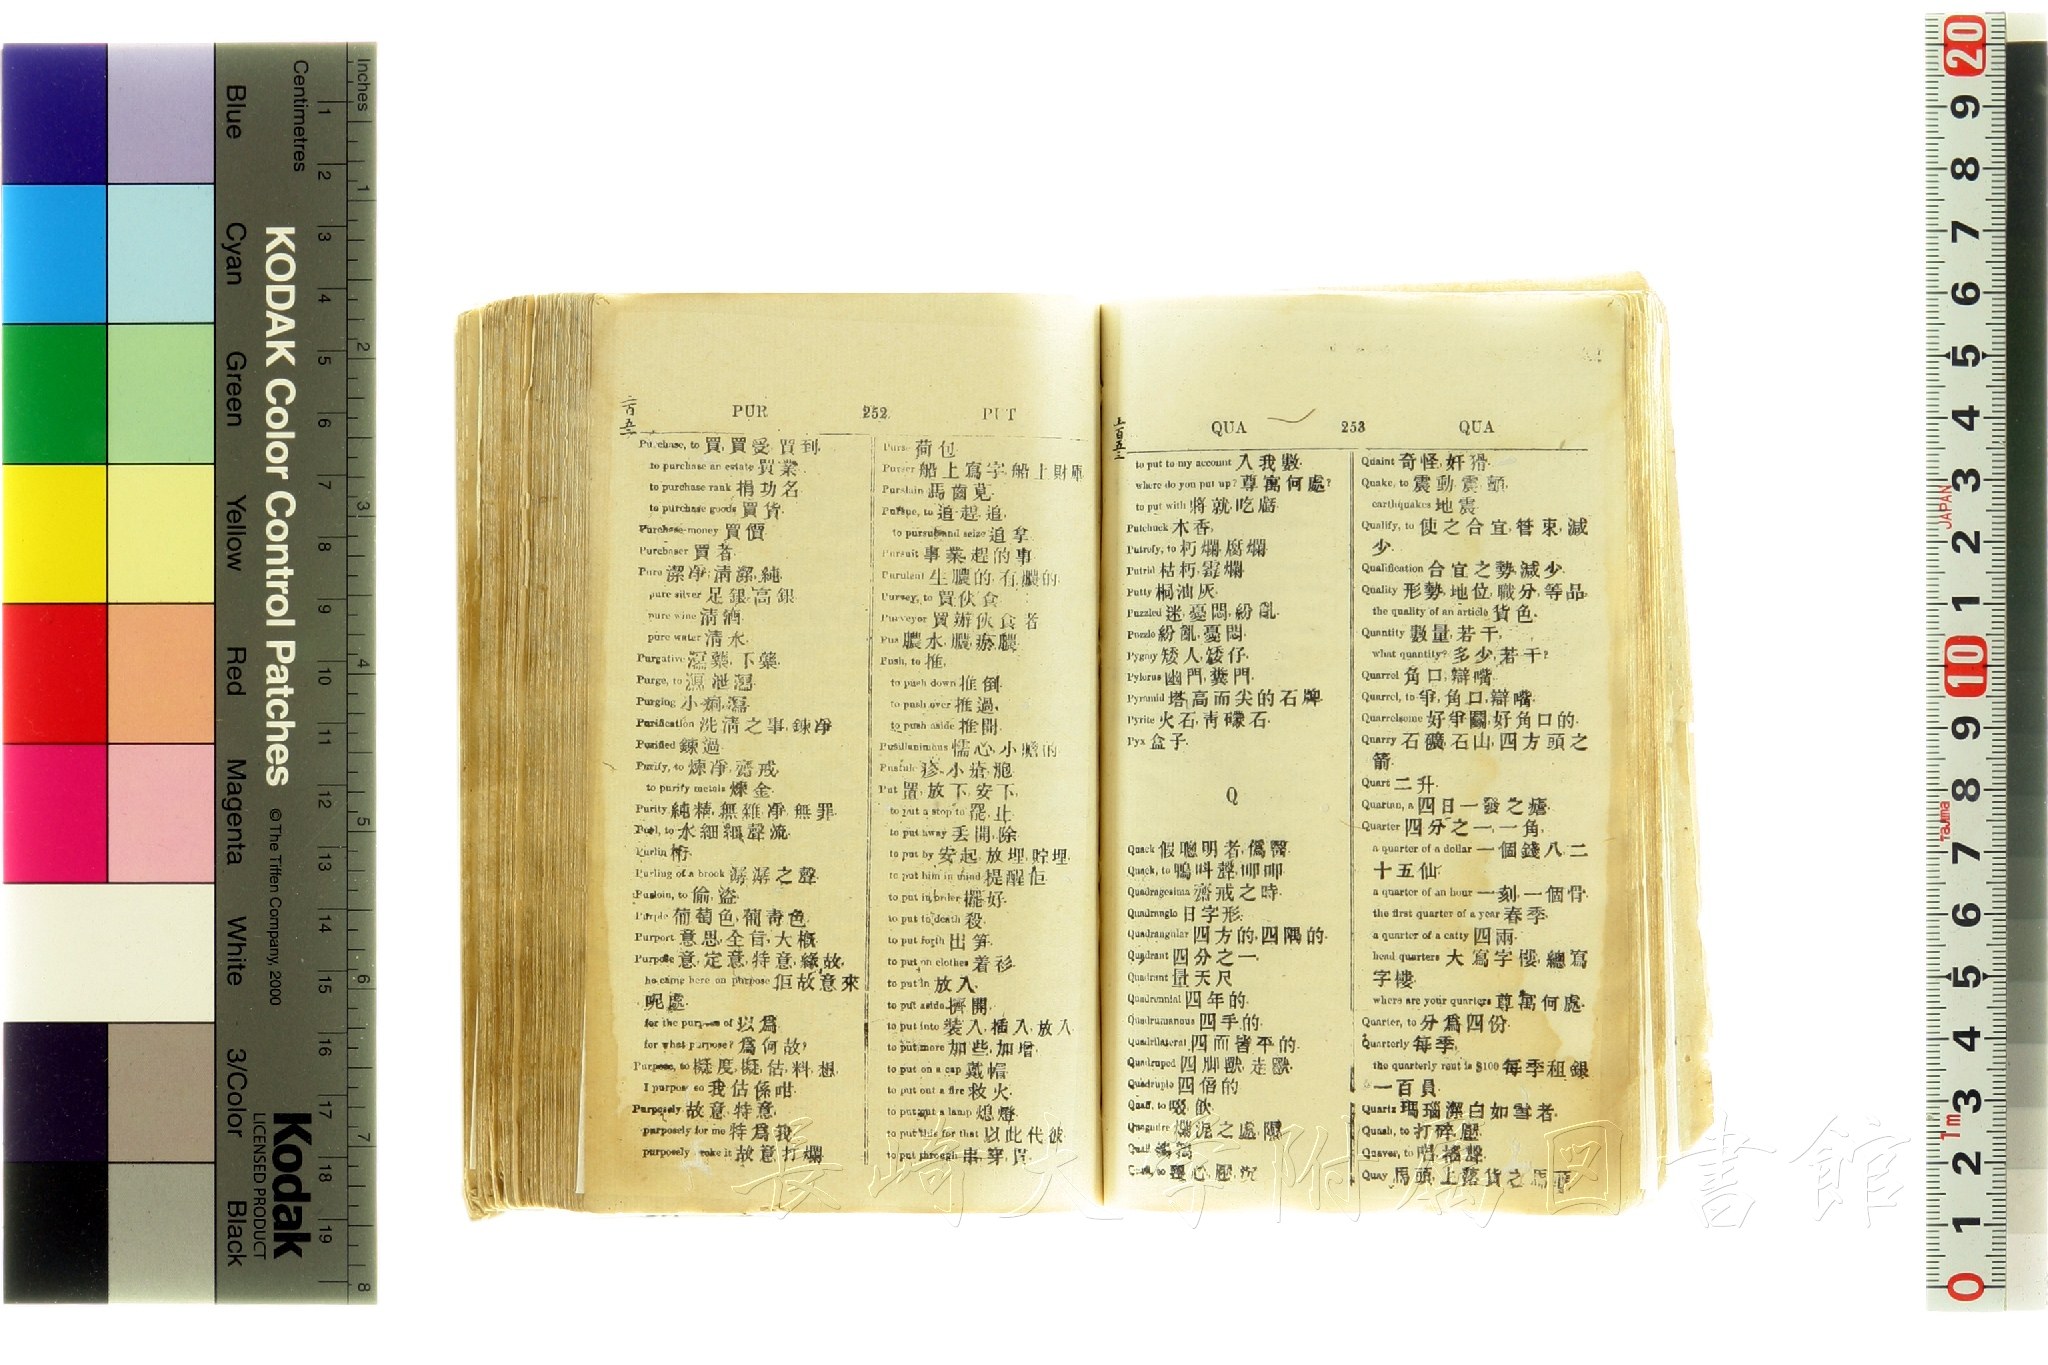 Inches
Centimetres
KODAK Color Control Patches
© The Tiffen Company, 2000
Kodak
LICENSED PRODUCT
Blue
Cyan
Green
Yellow
Red
Magenta
White
3/Color
Black
PUR 252 PUT
Purchase, to 買,買受,買到.
to purchase an estate 買業.
to purchase rank 捐功名.
to purchase goods 買貨.
Purchase-money 買價.
Purchaser 買者.
Pure 潔凈,清潔,純.
pure silver 足銀,高銀.
pure wine 清酒.
pure water 清水.
Purgative 瀉藥,下藥.
Purge, to 瀉,泄瀉.
Purging 小痾,瀉.
Purification 洗清之事,鍊凈.
Purified 鍊過.
Purify, to 煉凈,齋戒.
to purify metals 煉金.
Purity 純精,無雜,凈,無罪.
Purl, to 水細細聲流.
Purlin 桁.
Purling of a brook 潺潺之聲.
Purloin, to 偷盜.
Purple 葡萄色,葡青色.
Purport 意思,全旨,大槪.
Purpose 意,定意,特意,緣故.
he came here on purpose 佢故意來
呢處.
for the purpose of 以爲.
for what purpose? 爲何故?
Purpose, to 擬度,擬,估,料,想.
I purpose so 我估係咁.
Purposely 故意,特意.
purposely for me 特爲我.
purposely broke it 故意打爛.
Purse 荷包.
Purser 船上寫字,船上財庫.
Purslain 馬齒莧.
Pursue, to 追,趕,追.
to pursue and seize 追拿.
Pursuit 事業,趕的事.
Purulent 生膿的,有膿的.
Purvey, to 買伙食.
Purveyor 買辦伙食者.
Pus 膿水,膿,瘀膿.
Push, to 推.
to push down 推倒.
to push over 推過.
to push aside 推開.
Pusillanimous 懦心,小膽的.
Pustule 疹,小瘡,皰.
Put 置,放下,安下.
to put a stop to 罷,止.
to put away 丢開,除.
to put by 安起,放埋,貯埋.
to put him in mind 提醒佢.
to put in order 擺好.
to put to death 殺.
to put forth 出笋.
to put on clothes 着衫.
to put in 放入.
to put aside 擠開.
to put into 裝入,插入,放入.
to put more 加些,加增.
to put on a cap 戴帽.
to put out a fire 救火.
to put out a lamp 熄燈.
to put this for that 以此代彼.
to put through 串,穿,貫.
QUA 253 QUA
to put to my account 入我數.
where do you put up? 尊寓何處?
to put with 將就,吃虧.
Putchuck 木香.
Putrefy, to 朽爛,腐爛.
Putrid 枯朽,霉爛.
Putty 桐油灰.
Puzzled 迷,憂悶,紛亂.
Puzzle 紛亂,憂悶.
Pygmy 矮人,矮仔.
Pylorus 幽門,糞門.
Pyramid 塔,高而尖的石牌.
Pyrite 火石,青礞石.
Pyx 盒子.
Q
Quack 假聰明者,僞醫.
Quack, to 鴨叫聲,呷呷.
Quadragesima 齋戒之時.
Quadrangle 日字形.
Quadrangular 四方的,四隅的.
Quadrant 四分之一.
Quadrant 量天尺.
Quadrennial 四年的.
Quadrumanous 四手的.
Quadrilateral 四面皆平的.
Quadruped 四脚獸,走獸.
Quadruple 四倍的.
Quaff, to 吸飲.
Quagmire 爛泥之處
Quail
壓心,壓,沉.
Quaint 奇怪,奸猾.
Quake, to 震動,震顫.
earthquakes 地震.
Qualify, to 使之合宜,管束,減
少.
Qualification 合宜之勢,減少.
Quality 形勢,地位,職分,等品.
the quality of an article 貨色.
Quantity 數量,若干.
what quantity? 多少,若干?
Quarrel 角口,辯嘴.
Quarrel, to 爭,角口,辯嘴.
Quarrelsome 好爭鬬,好角口的.
Quarry 石礦,石山,四方頭之
箭.
Quart 二升.
Quartan, a 四日一發之瘧.
Quarter 四分之一,一角.
a quarter of a dollar 一個錢八,二
十五仙.
a quarter of an hour 一刻,一個骨.
the first quarter of a year 春季.
a quarter of a catty 四兩.
head quarters 大寫字樓,總寫
字樓.
where are your quarters 尊寓何處.
Quarter, to 分爲四份.
Quarterly 每季.
the quarterly rent is $100 每季租銀
一百員.
Quartz 瑪瑙,潔白如雪者.
Quash, to 打碎,壓.
Quaver, to 唱搖聲.
Quay 馬頭,上落貨之馬頭.
長崎大学附属図書館
JAPAN
Tajima
1m